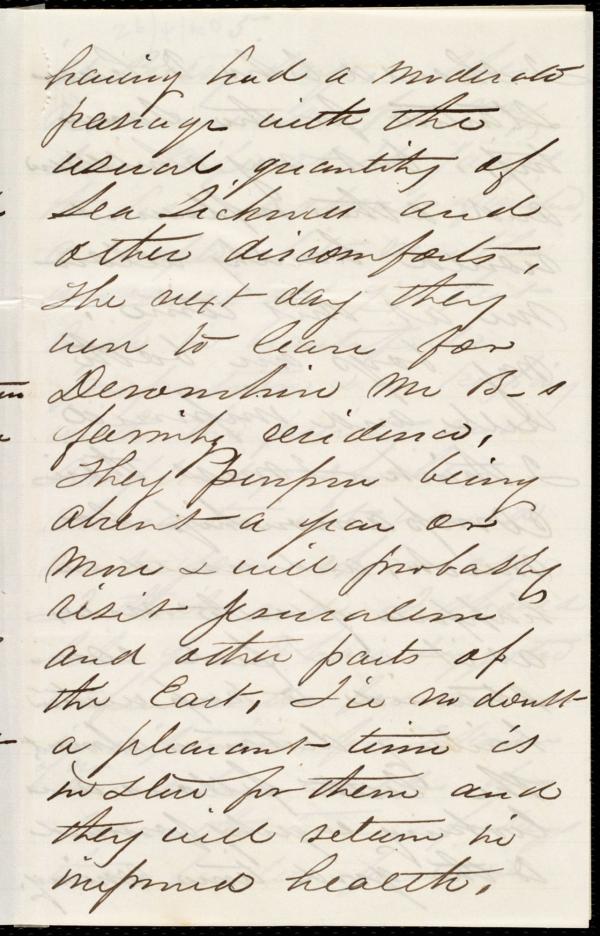 having had a moderate
passage with the
usual quantity of
Sea Sickness and
other discomforts,
The next day they
were to leave for
Devonshire Mr B-s
family residence,
They purpose being
absent a year or
more & will probably
visit Jerusalem
and other parts of
the East, I've no doubt
a pleasant time is
in store for them and
they will return in
improved health,